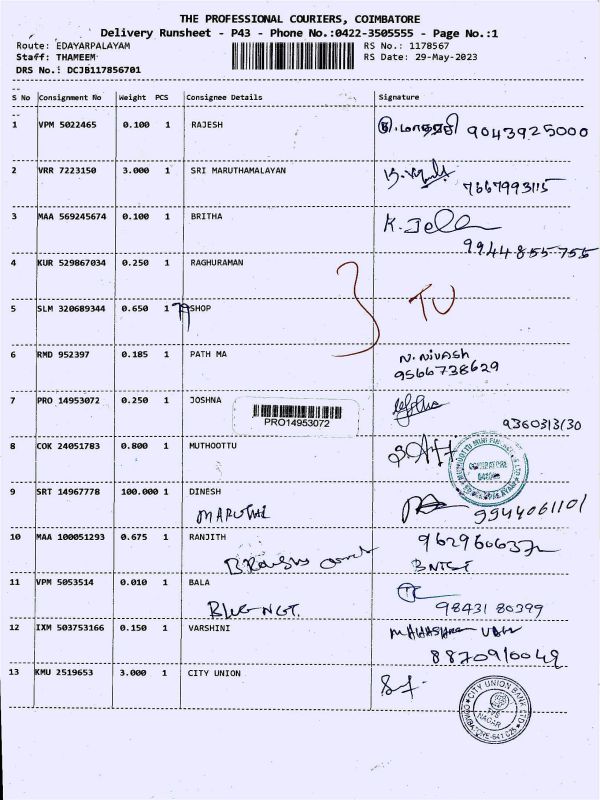 THE PROFESSIONAL COURIERS, COIMBATORE
Delivery Runsheet - P43 - Phone No.:0422-3505555 - Page No.:1
Route: EDAYARPALAYAM RS No.: 1178567
Staff: THAMEEM RS Date: 29-May-2023
DRS No.: DCJB117856701
S No Consignment No Weight PCS Consignee Details Signature
1 VPM 5022465 0.100 1 RAJESH 9043925000
2 VRR 7223150 3.000 1 SRI MARUTHAMALAYAN
7667993115
3 MAA 569245674 0.100 1 BRITHA K.
9944855755
4 KUR 529867034 0.250 1 RAGHURAMAN
3 TU
5 SLM 320689344 0.650 1 SHOP
6 RMD 952397 0.185 1 PATH MA N. NIVASH
9566738629
7 PRO 14953072 0.250 1 JOSHNA
PRO14953072 9360313130
8 COK 24051783 0.800 1 MUTHOOTTU
COIMBATORE
9 SRT 14967778 100.000 1 DINESH
MARUTHI 9944061101
10 MAA 100051293 0.675 1 RANJITH
11 VPM 5053514 0.010 1 BALA
98431 80399
12 IXM 503753166 0.150 1 VARSHINI
8870910049
13 KMU 2519653 3.000 1 CITY UNION
CITY UNION BANK LTD
NAGAR
COIMBATORE-641 025